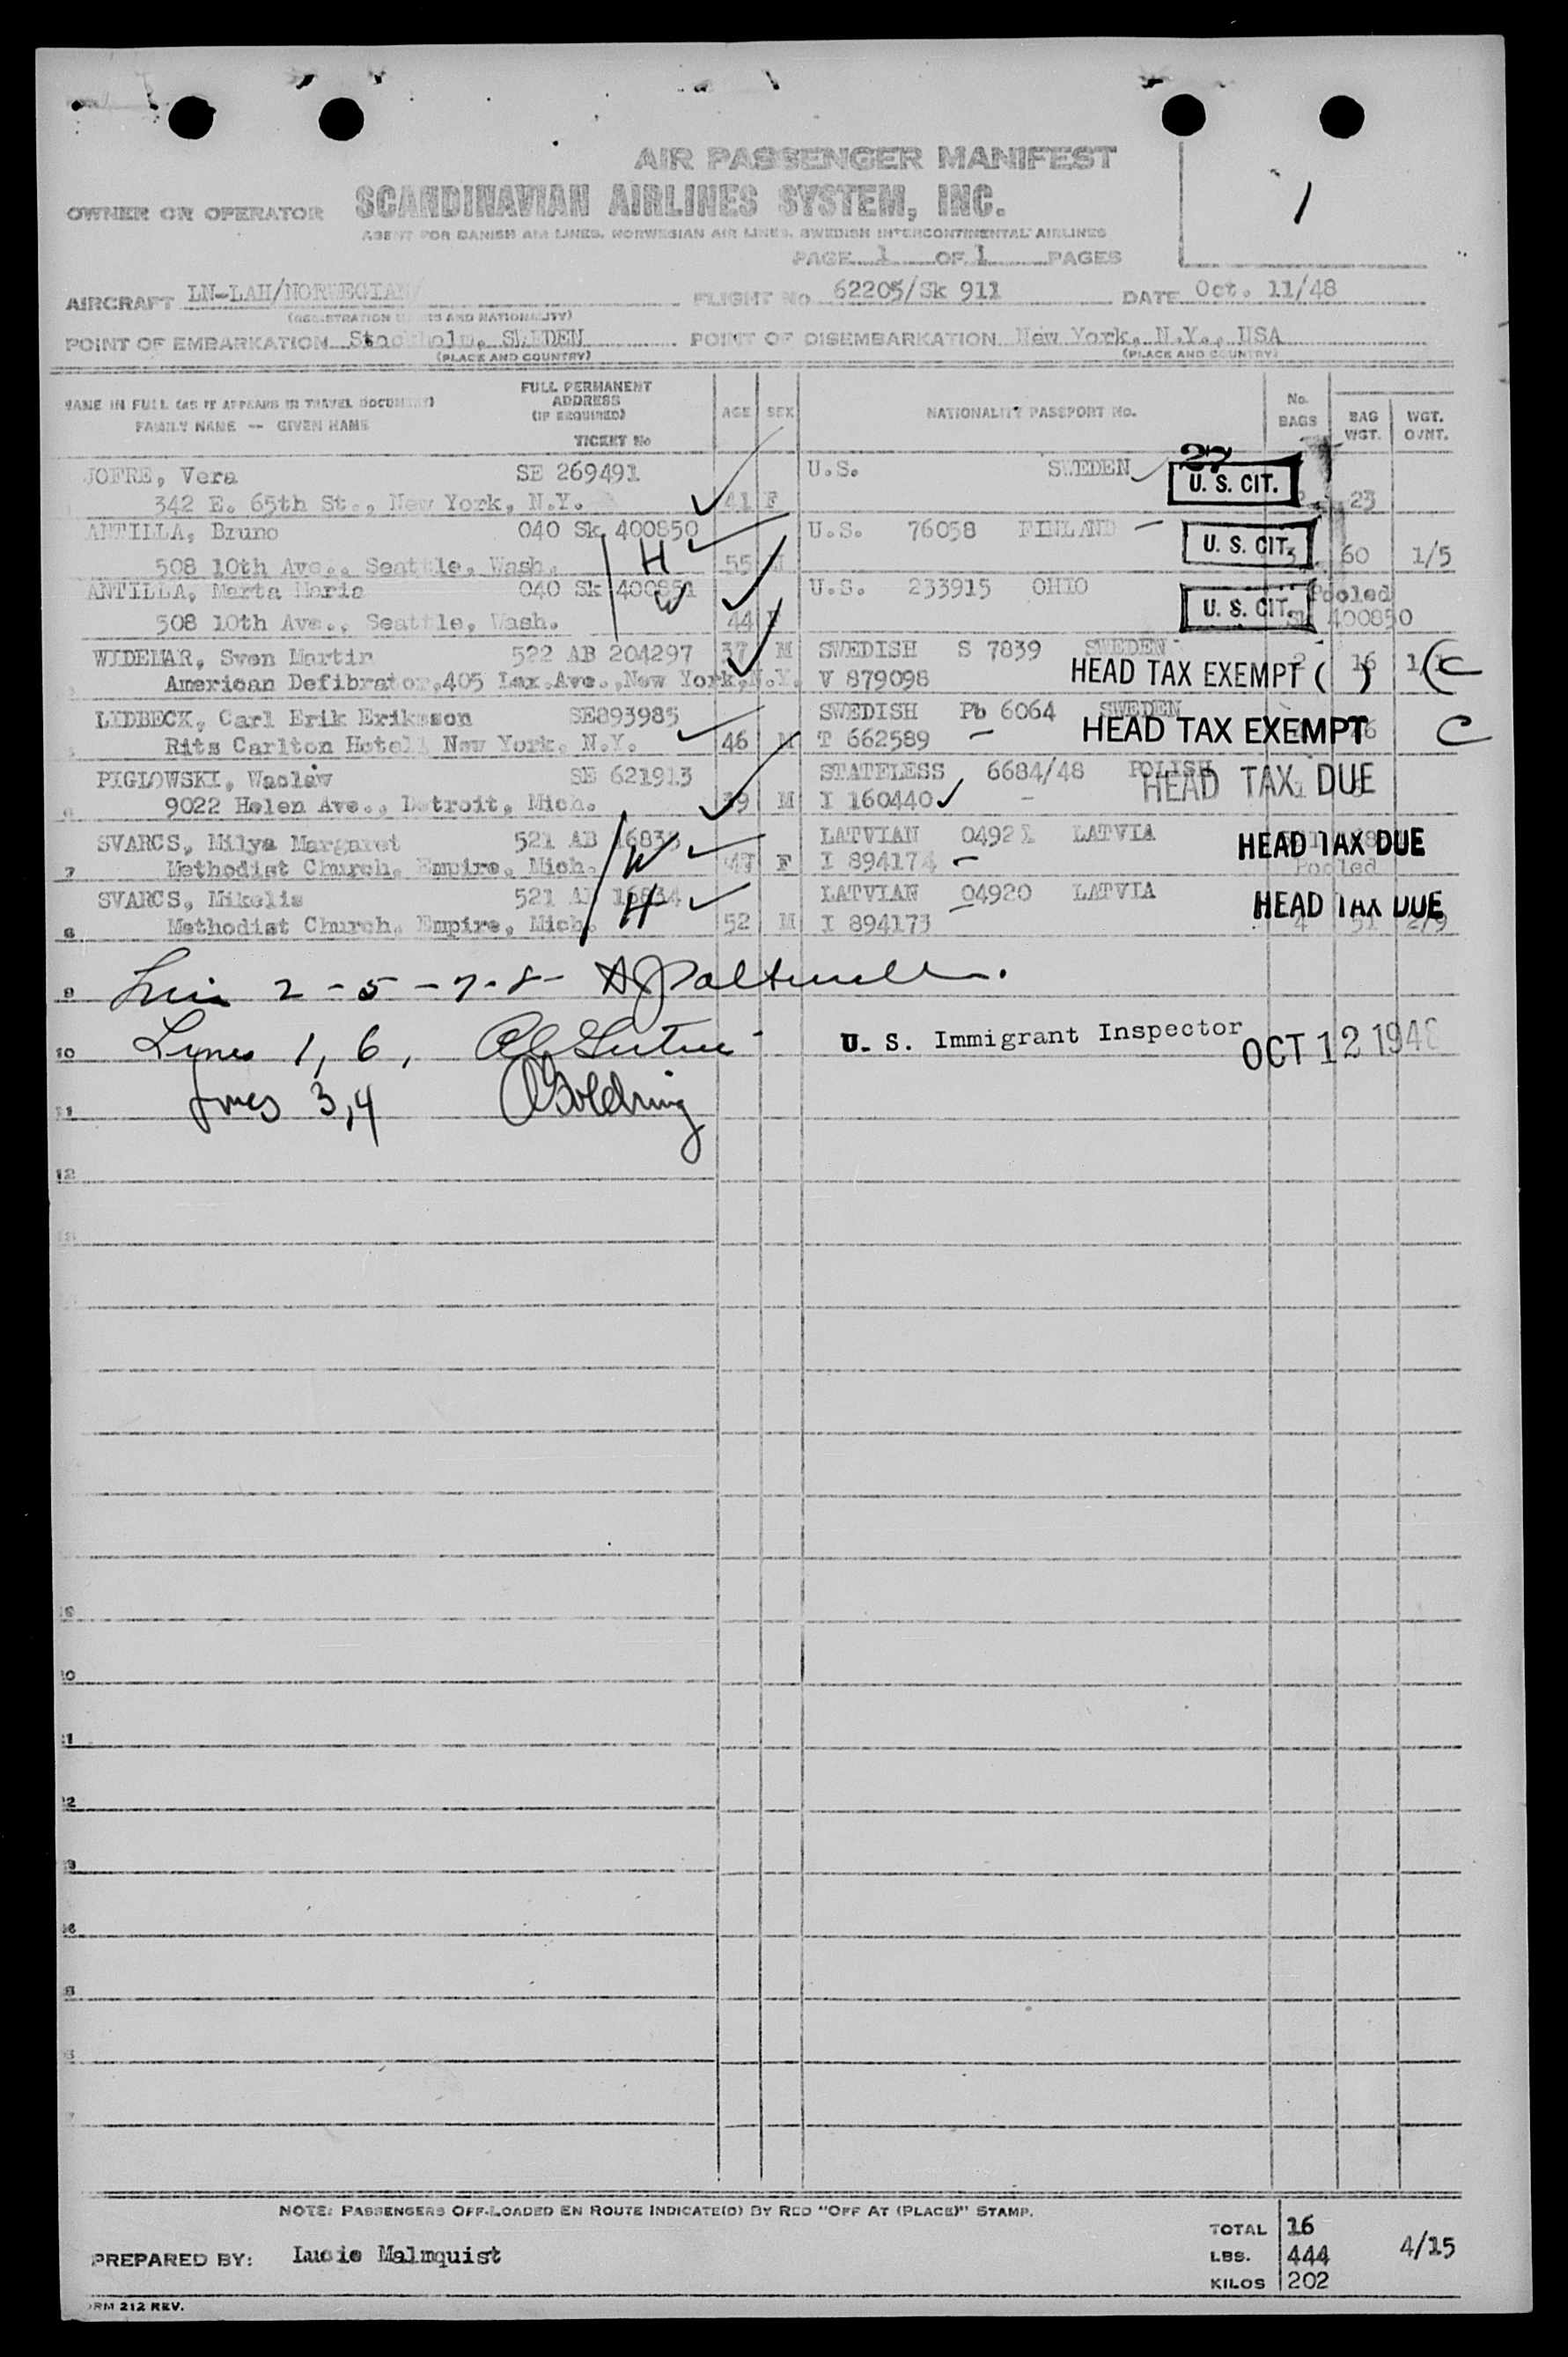 AIR PASSENGER MANIFEST
1
OWNER OR OPERATOR SCANDINAVIAN AIRLINES SYSTEM, INC.
AGENT FOR DANISH AIR LINES, NORWEGIAN AIR LINES, SWEDISH INTERCONTINENTAL AIRLINES
PAGE 1 OF 1 PAGES
AIRCRAFT LN-LAH/NORWEGIAN/ FLIGHT NO 62205/Sk 911 DATE Oct. 11/48
(REGISTRATION MARKS AND NATIONALITY)
POINT OF EMBARKATION Stockholm, SWEDEN POINT OF DISEMBARKATION New York, N.Y., USA
(PLACE AND COUNTRY) (PLACE AND COUNTRY)
NAME IN FULL (AS IT APPEARS IN TRAVEL DOCUMENT) FULL PERMANENT ADDRESS (IF REQUIRED) AGE SEX NATIONALITY PASSPORT No. No. BAGS BAG WGT. WGT. OVNT.
FAMILY NAME -- GIVEN NAME TICKET No
JOFRE, Vera SE 269491 U.S. SWEDEN 27
342 E. 65th St., New York, N.Y. 41 F U. S. CIT. 23
ANTILLA, Bruno 040 Sk 400850 U.S. 76058 FINLAND
508 10th Ave., Seattle, Wash. H 55 U. S. CIT. 3 60 1/5
ANTILLA, Marta Maria 040 Sk 400851 U.S. 233915 OHIO Pooled
508 10th Ave., Seattle, Wash. W 44 F U. S. CIT. Sk 400850
WIDEMAR, Sven Martin 522 AB 204297 37 M SWEDISH S 7839 SWEDEN 2 16
American Defibrator, 405 Lex.Ave., New York, N.Y. V 879098 HEAD TAX EXEMPT ( ) C
LIDBECK, Carl Erik Eriksson SE893985 SWEDISH Pb 6064 SWEDEN
Ritz Carlton Hotel, New York, N.Y. 46 M T 662589 HEAD TAX EXEMPT C
PIGLOWSKI, Waclaw SE 621913 STATELESS 6684/48 POLISH
9022 Helen Ave., Detroit, Mich. 39 M I 160440 HEAD TAX DUE
SVARCS, Milya Margaret 521 AB 16833 LATVIAN 04921 LATVIA HEAD TAX DUE
7 Methodist Church, Empire, Mich. W 47 F I 894174 Pooled
SVARCS, Mikelis 521 AB 16834 LATVIAN 04920 LATVIA HEAD TAX DUE
8 Methodist Church, Empire, Mich. H 52 M I 894173 4 51 2/9
9 2 - 5 - 7 - 8 -
10 Lines 1, 6, U. S. Immigrant Inspector OCT 12 1948
11 Lines 3,4 Goldring
12
NOTE: PASSENGERS OFF-LOADED EN ROUTE INDICATE(D) BY RED "OFF AT (PLACE)" STAMP.
PREPARED BY: Lucie Malmquist
TOTAL 16
LBS. 444 4/15
KILOS 202
FORM 212 REV.